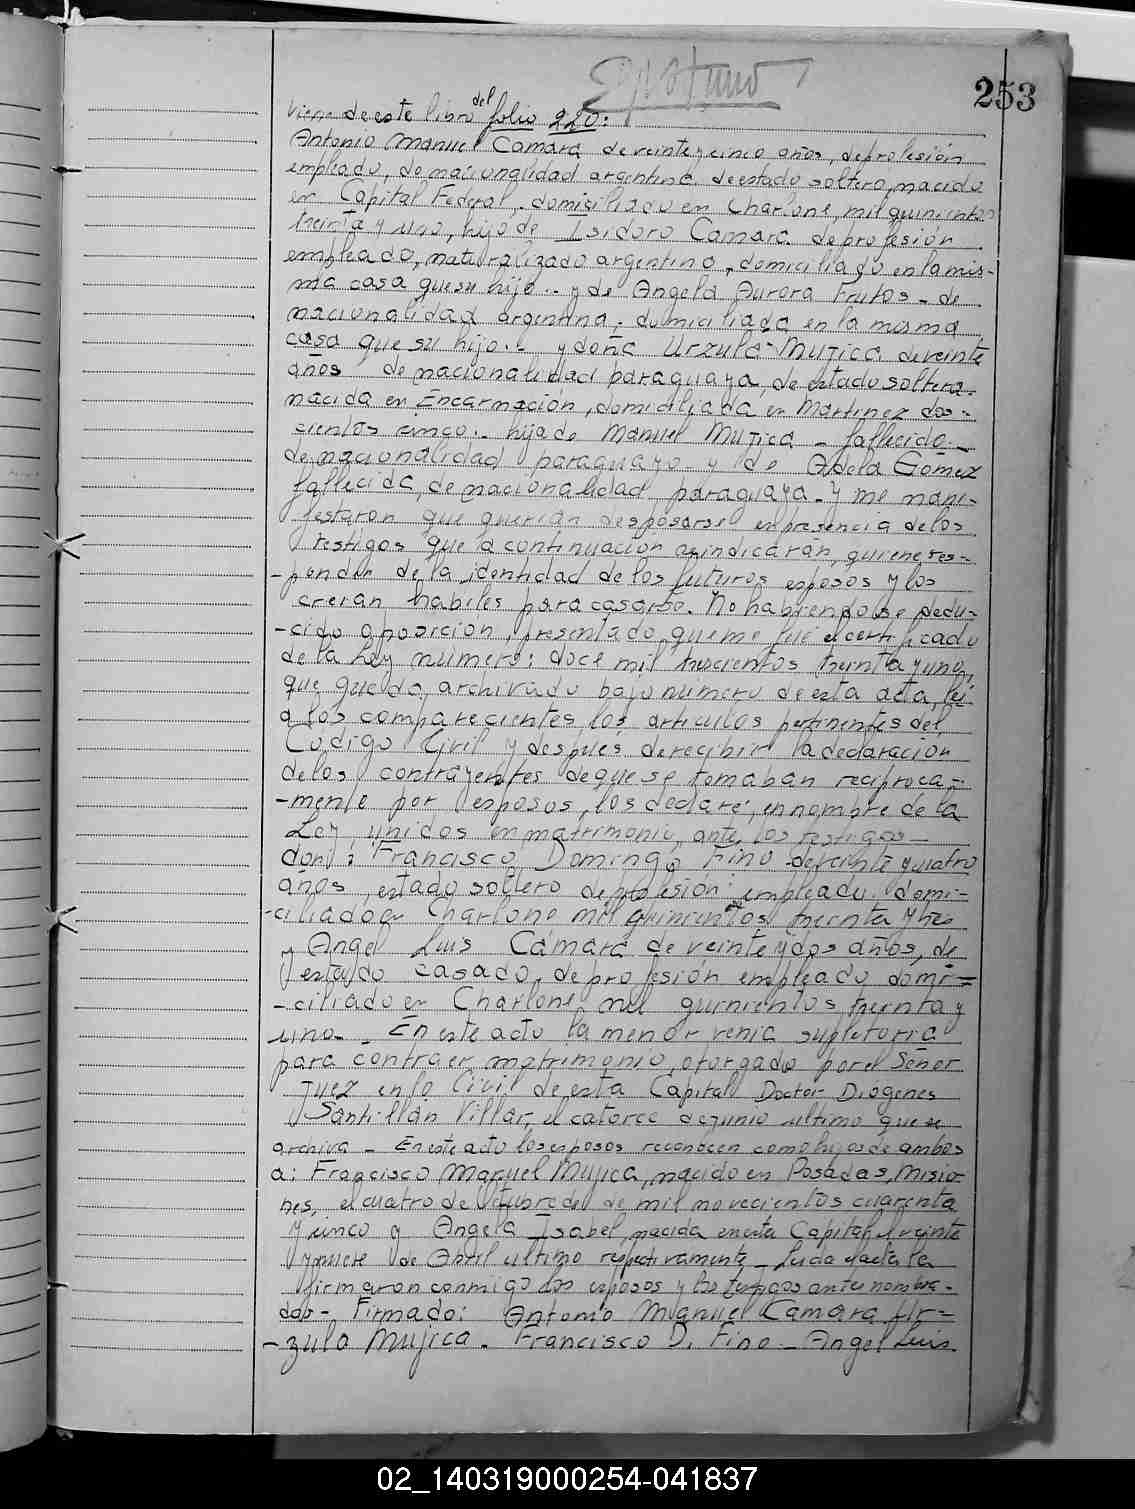 253
viene de este libro del folio 220:
Antonio Manuel Camara de veinte y cinco años, de profesión
empleado, de nacionalidad argentina de estado soltero, nacido
en Capital Federal, domiciliado en Charlone, mil quinientos
treinta y uno, hijo de Isidoro Camara de profesión
empleado, naturalizado argentino, domiciliado en la mis-
ma casa que su hijo.- y de Angela Aurora Frutos - de
nacionalidad argentina, domiciliada en la misma
casa que su hijo.- y doña Urzula Mujica de veinte
años de nacionalidad paraguaya, de estado soltera
nacida en Encarnación, domiciliada en Martinez dos-
cientos cinco.- hija de Manuel Mujica - fallecido -
de nacionalidad paraguayo - y de Adela Gómez
fallecida, de nacionalidad paraguaya - Y me mani-
festaron que querían desposarse en presencia de los
testigos que a continuación se indicarán, quienes res-
-ponden de la identidad de los futuros esposos y los
creían hábiles para casarse. No habiéndose dedu-
-cido oposición, presentado que me fué el certificado
de la Ley número: doce mil trescientos treinta y uno,
que quedo archivado bajo número de esta acta, leí
a los comparecientes los artículos pertinentes del
Código Civil y después de recibir la declaración
de los contrayentes de que se tomaban recíproca-
-mente por esposos, los declaré, en nombre de la
Ley, unidos en matrimonio, ante los testigos -
don: Francisco Domingo Fino de veinte y cuatro
años, estado soltero de profesión: empleado domi-
-ciliado en Charlone mil quinientos treinta y tres
y Angel Luis Cámara de veinte y dos años, de
estado casado, de profesión empleado domi=
-ciliado en Charlone mil quinientos treinta y
uno - En este acto la menor venia supletoria
para contraer matrimonio, otorgado por el Señor
Juez en lo Civil de esta Capital Doctor Diógenes
Santillán Villar, el catorce de junio ultimo que se
archiva - En este acto los esposos reconocen como hijos de ambos
a: Francisco Manuel Mujica, nacido en Posadas, Misio-
nes, el cuatro de de mil novecientos cuarenta
y cinco y Angela Isabel, nacida en esta Capital, el veinte
y nueve de Abril ultimo respectivamente - Leida el acta la
firmaron conmigo los esposos y los testigos antes nombra-
dos - Firmado: Antonio Manuel Camara Ur=
-zula Mujica - Francisco D. Fino - Angel Luis
02_140319000254-041837